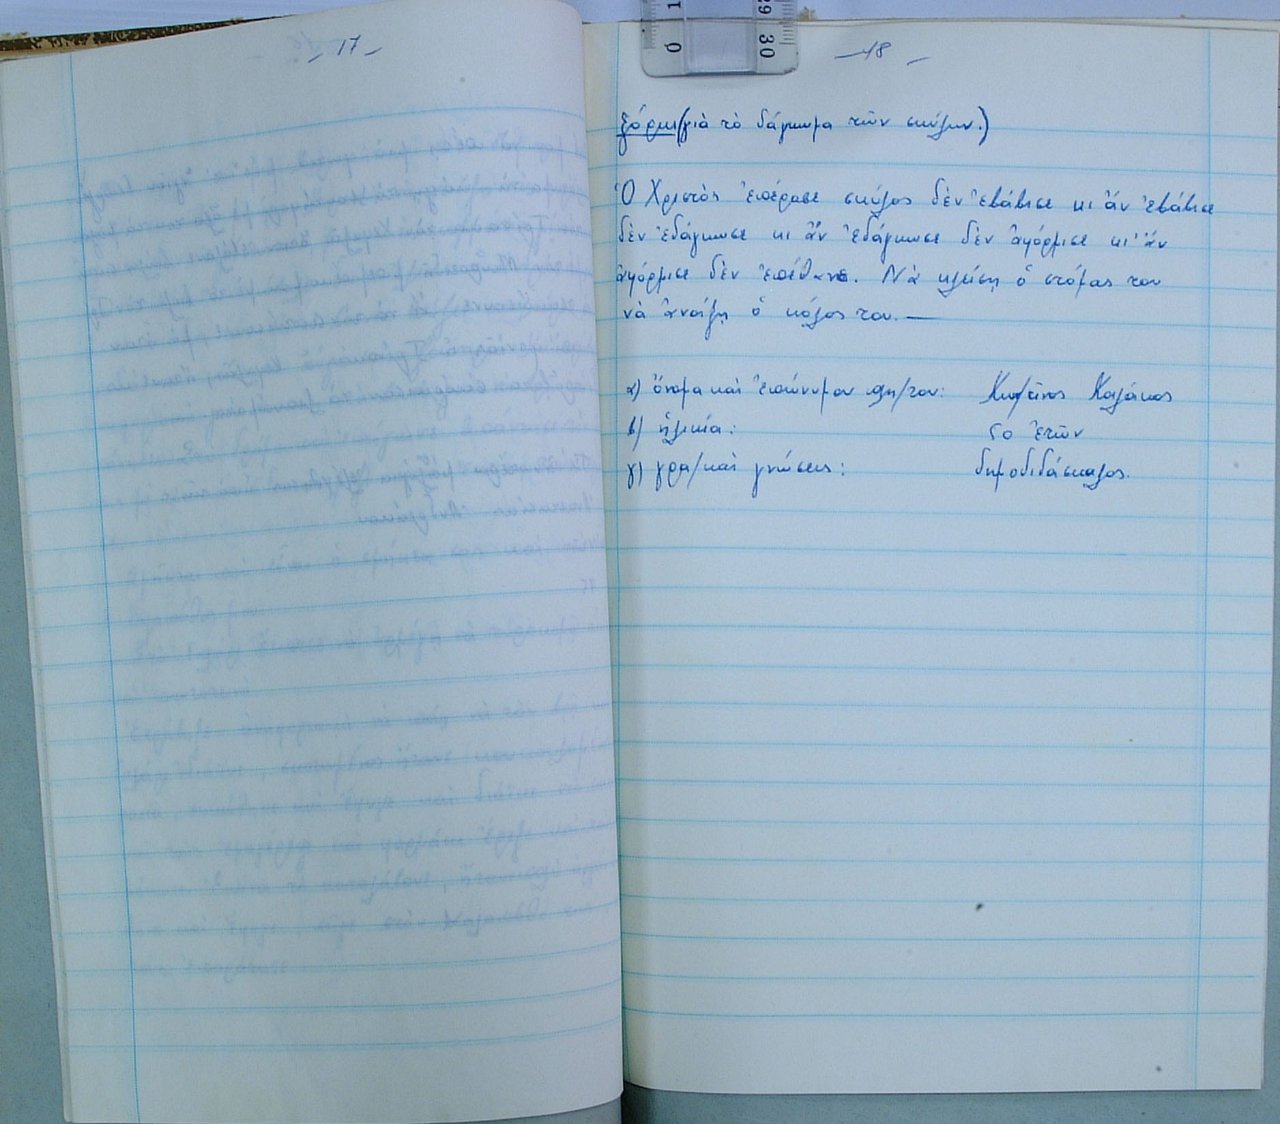 - 17 -
- 18 -
ξόρκι (γιὰ τὸ δάγκωμα τῶν σκύλων.)
Ὁ Χριστὸς ἐπέρασε σκύλος δὲν ἐβάβισε κι ἄν ἐβάβισε
δὲν ἐδάγκωσε κι ἄν ἐδάγκωσε δὲν ἀφόρμισε κι' ἄν
ἀφόρμισε δὲν ἐπέθανε. Νὰ κλείση ὁ στόμας του
νὰ ἀνοίξη ὁ κόλος του. —
α) ὄνομα καὶ ἐπώνυμον πλη/του:
β) ἡλικία: 50 ἐτῶν
γ) γρα/καὶ γνώσεις: δημοδιδάσκαλος.